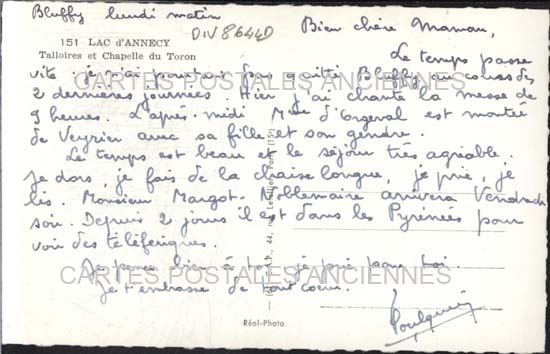 Bluffy lundi matin
DIV8644D
151 LAC d'ANNECY
Talloires et Chapelle du Toron
Bien chère Maman,
Le temps passe
vite je n'ai pourtant pas quitté Bluffy au cours des
2 dernières journées. Hier j'ai chanté la messe de
9 heures. L'après-midi Mme d'Orgeval est montée
de Veyrier avec sa fille et son gendre.
Le temps est beau et le séjour très agréable.
Je dors, je fais de la chaise longue, je prie, je
lis. Monsieur Margot-Noblemaire arrivera Vendredi
soir. Depuis 2 jours il est dans les Pyrénées pour
voir des téléfériques.
Je pense bien à toi, je prie pour toi
je t'embrasse de tout coeur.
CARTES POSTALES ANCIENNES
CARTES POSTALES ANCIENNES
Réal-Photo